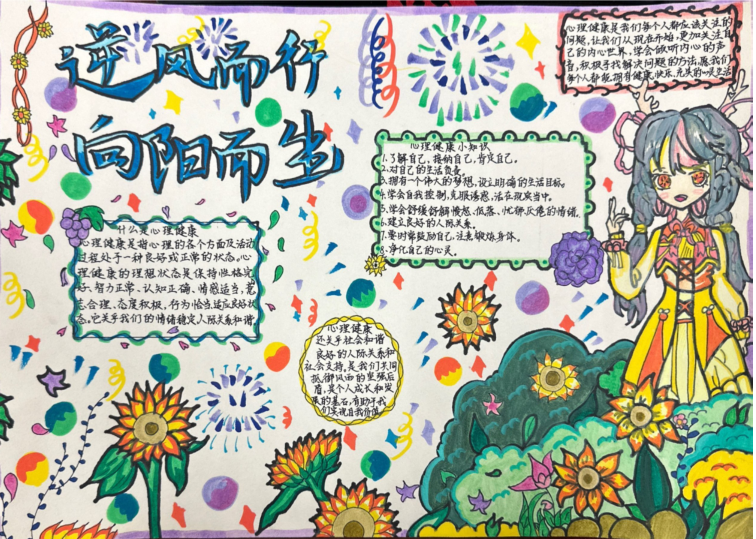 逆风而行
向阳而生
心理健康是我们每个人都应该关注的
问题,让我们从现在开始,更加关注自
己的内心世界,学会倾听内心的声
音,积极寻找解决问题的方法,愿我们
每个人都能拥有健康、快乐、充实的心灵生活
心理健康小知识
1.了解自己、接纳自己、肯定自己。
2.对自己的生活负责。
3.拥有一个伟大的梦想,设立明确的生活目标。
4.学会自我控制,克服诱惑,活在现实当中。
5.学会舒缓舒解愤怒、低落、忧郁厌倦的情绪。
6.建立良好的人际关系。
7.要时常鼓励自己,注意锻炼身体。
8.净化自己的心灵。
什么是心理健康
心理健康是指心理的各个方面及活动
过程处于一种良好或正常的状态。心
理健康的理想状态是保持性格完
好、智力正常、认知正确、情感适当、意
志合理、态度积极、行为恰当适应良好状
态。它关乎我们的情绪稳定人际关系和谐
心理健康
还关乎社会和谐
良好的人际关系和
社会支持,是我们共同
抵御风雨的坚强后
盾,是个人成长和发
展的基石,有助于我
们实现自我价值